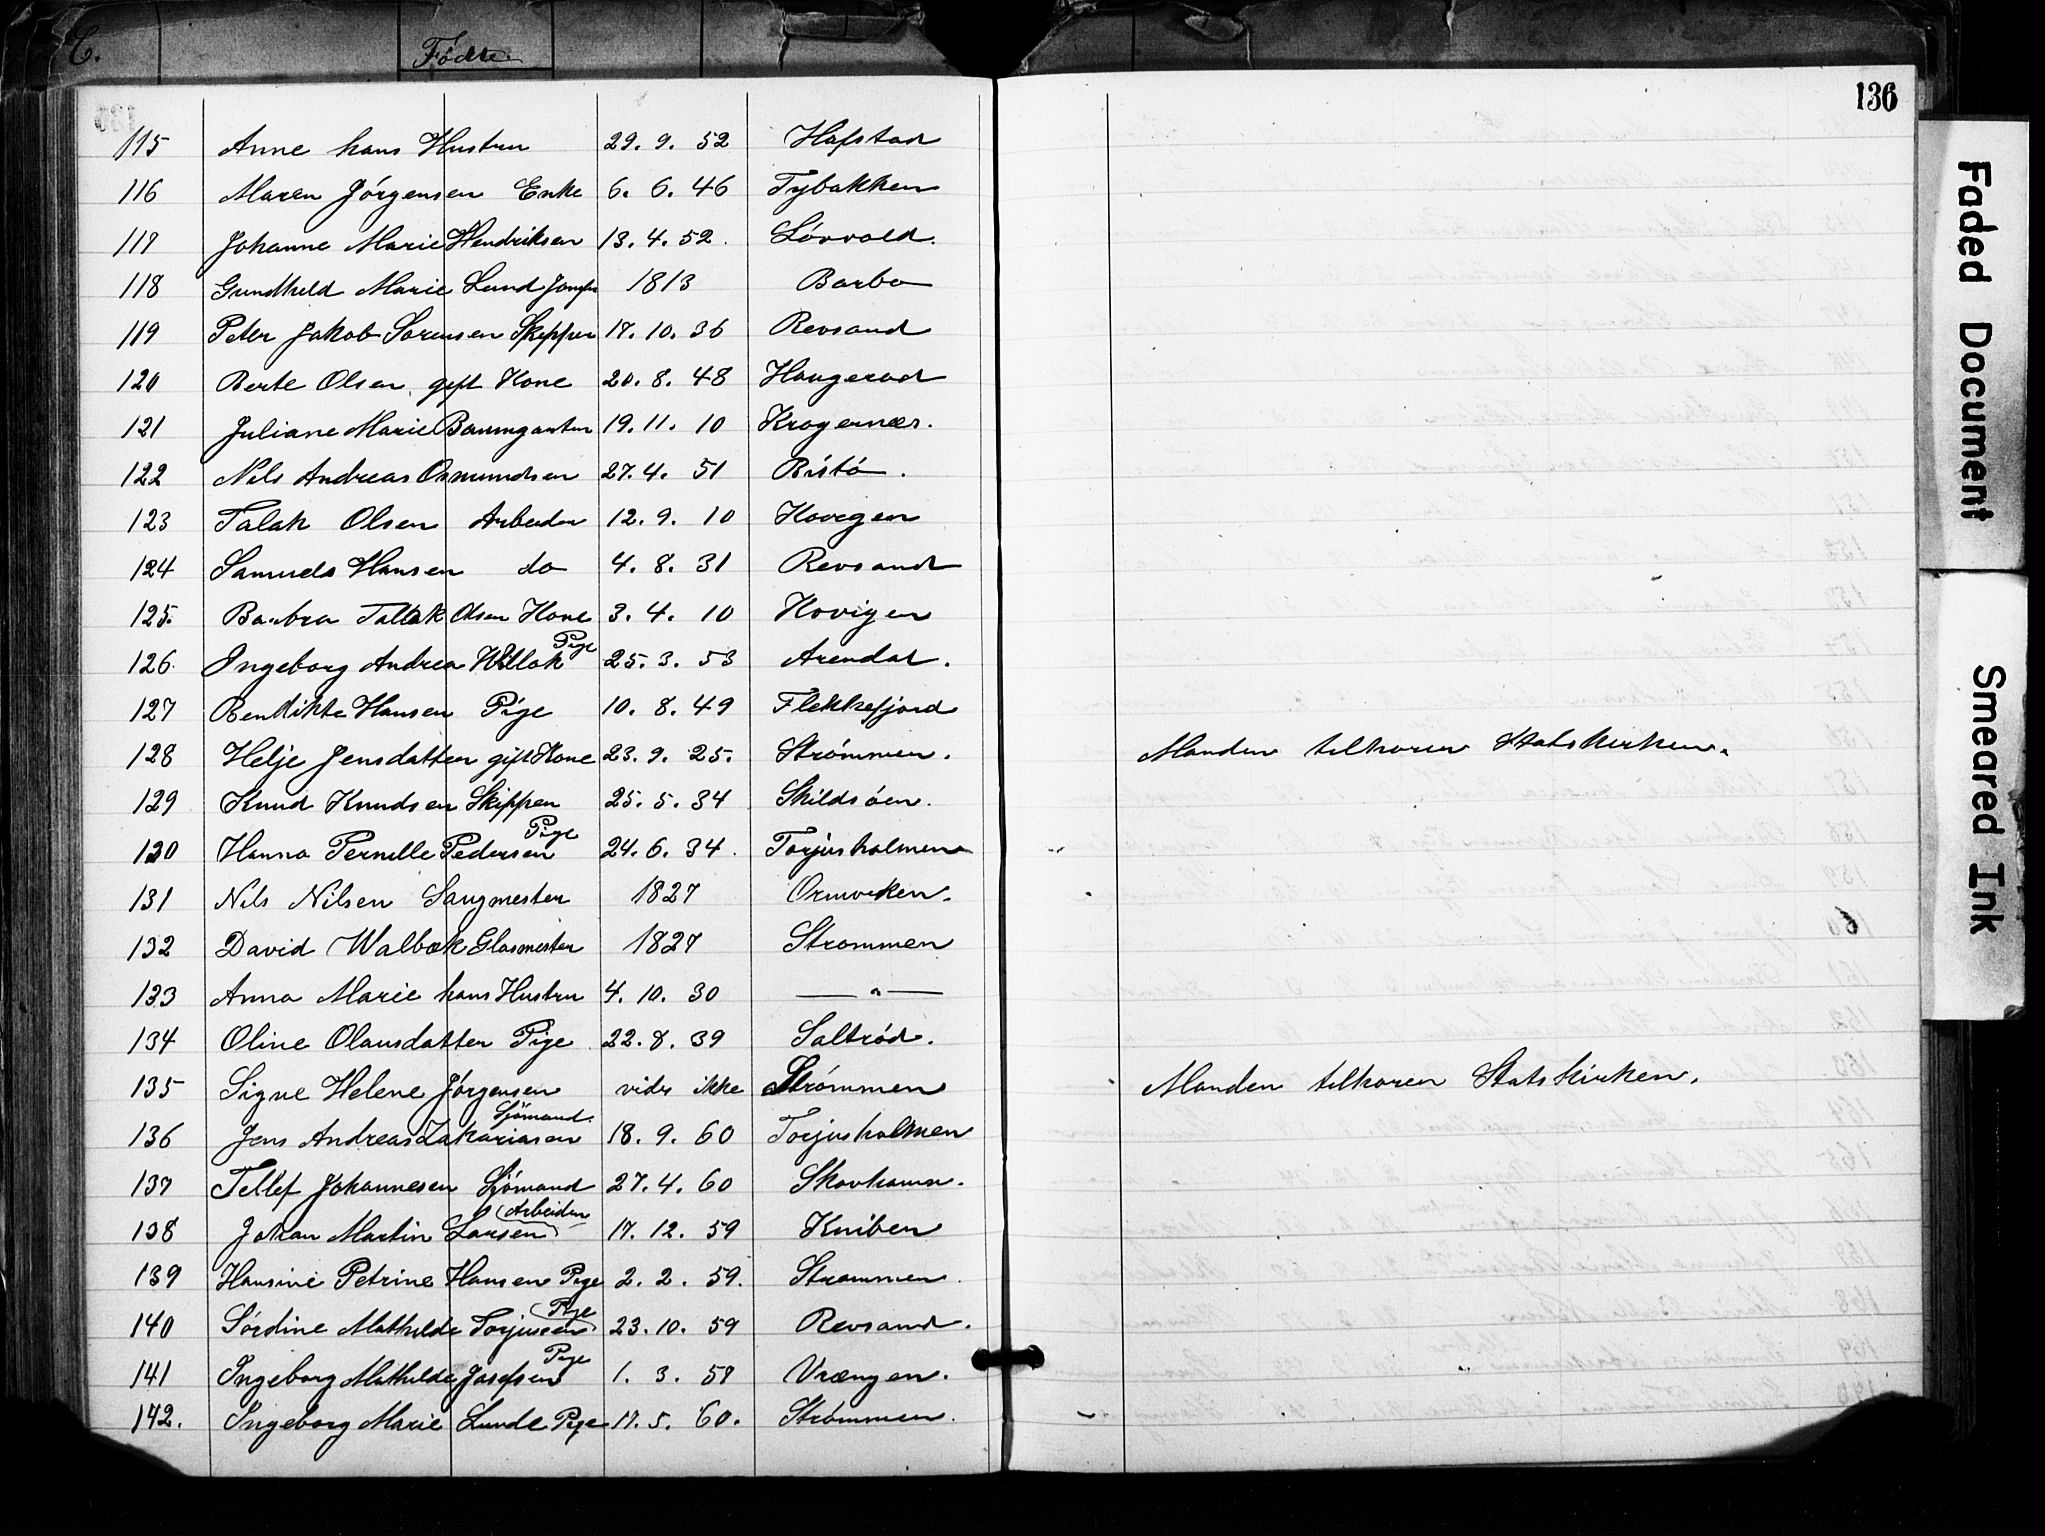 C.
Fødte.
136
115 Anne hans Hustru 29. 9. 52 Hafstad
116 Maren Jørgensen Enke 6. 6. 46 Tybakken
117 Johanne Marie Hendriksen 13. 4. 52. Løvvold.
118 Gundhild Marie Lund Jomfr 1813 Barbo
119 Peter Jakob Sørensen Skipper 17. 10. 36 Revsand
120 Berte Olsen, gift Kone 20. 8. 48 Haugerød
121 Juliane Marie Baumgarten 19. 11. 10 Kragernæs.
122 Nils Andreas Osmundsen 27. 4. 51 Bistø.
123 Talak Olsen Arbeider 12. 9. 10 Hovigen
124 Samuels Hansen do 4. 8. 31 Revsand
125. Barbra Tallak Olsen Kone 3. 4. 10 Hovigen
126. Ingeborg Andrea Willok Pige 25. 3. 53 Arendal.
127 Bendikte Hansen Pige 10. 8. 49 Flekkefjord
128 Helje Jensdatter gift Kone 23. 9. 25. Strømmen. Manden tilhører Statskirken.
129 Knud Knudsen Skipper 25. 5. 34 Skildsøen.
130 Hanna Pernille Pedersen Pige 24. 6. 34. Torjusholmen
131 Nils Nilsen Saugmester 1827 Ormviken.
132 David Walbæk Glasmester 1827 Strømmen
133 Anna Marie hans Hustru 4. 10. 30 — " —
134 Oline Olausdatter Pige 22. 8. 39 Saltrød.
135 Signe Helene Jørgensen vides ikke Strømmen Manden tilhører Statskirken.
136 Jens Andreas Zakariasen Sjømand. 18. 9. 60 Torjusholmen
137 Tellef Johannesen Sjømand 27. 4. 60 Skovhavn.
138 Johan Martin Larsen (Arbeider) 17. 12. 59 Kniben
139 Hansine Petrine Hansen Pige 2. 2. 59. Strømmen
140 Sørdine Mathilde Torjusen (Pige) 23. 10. 59 Revsand.
141 Ingeborg Mathilde Josefsen Pige 1. 3. 58 Vrængen.
142. Ingeborg Marie Lunde Pige 17. 5. 60. Strømmen.
Faded Document
Smeared Ink